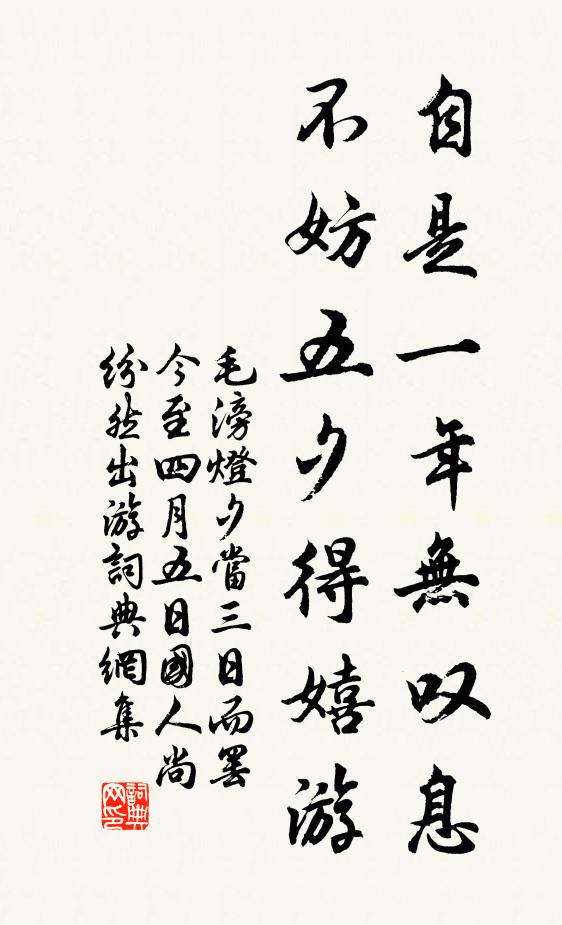 自是一年無叹息
不妨五夕得嬉游
毛滂燈夕當三日而罢
今至四月五日國人尚
纷然出游詞典網集
詞典
网印